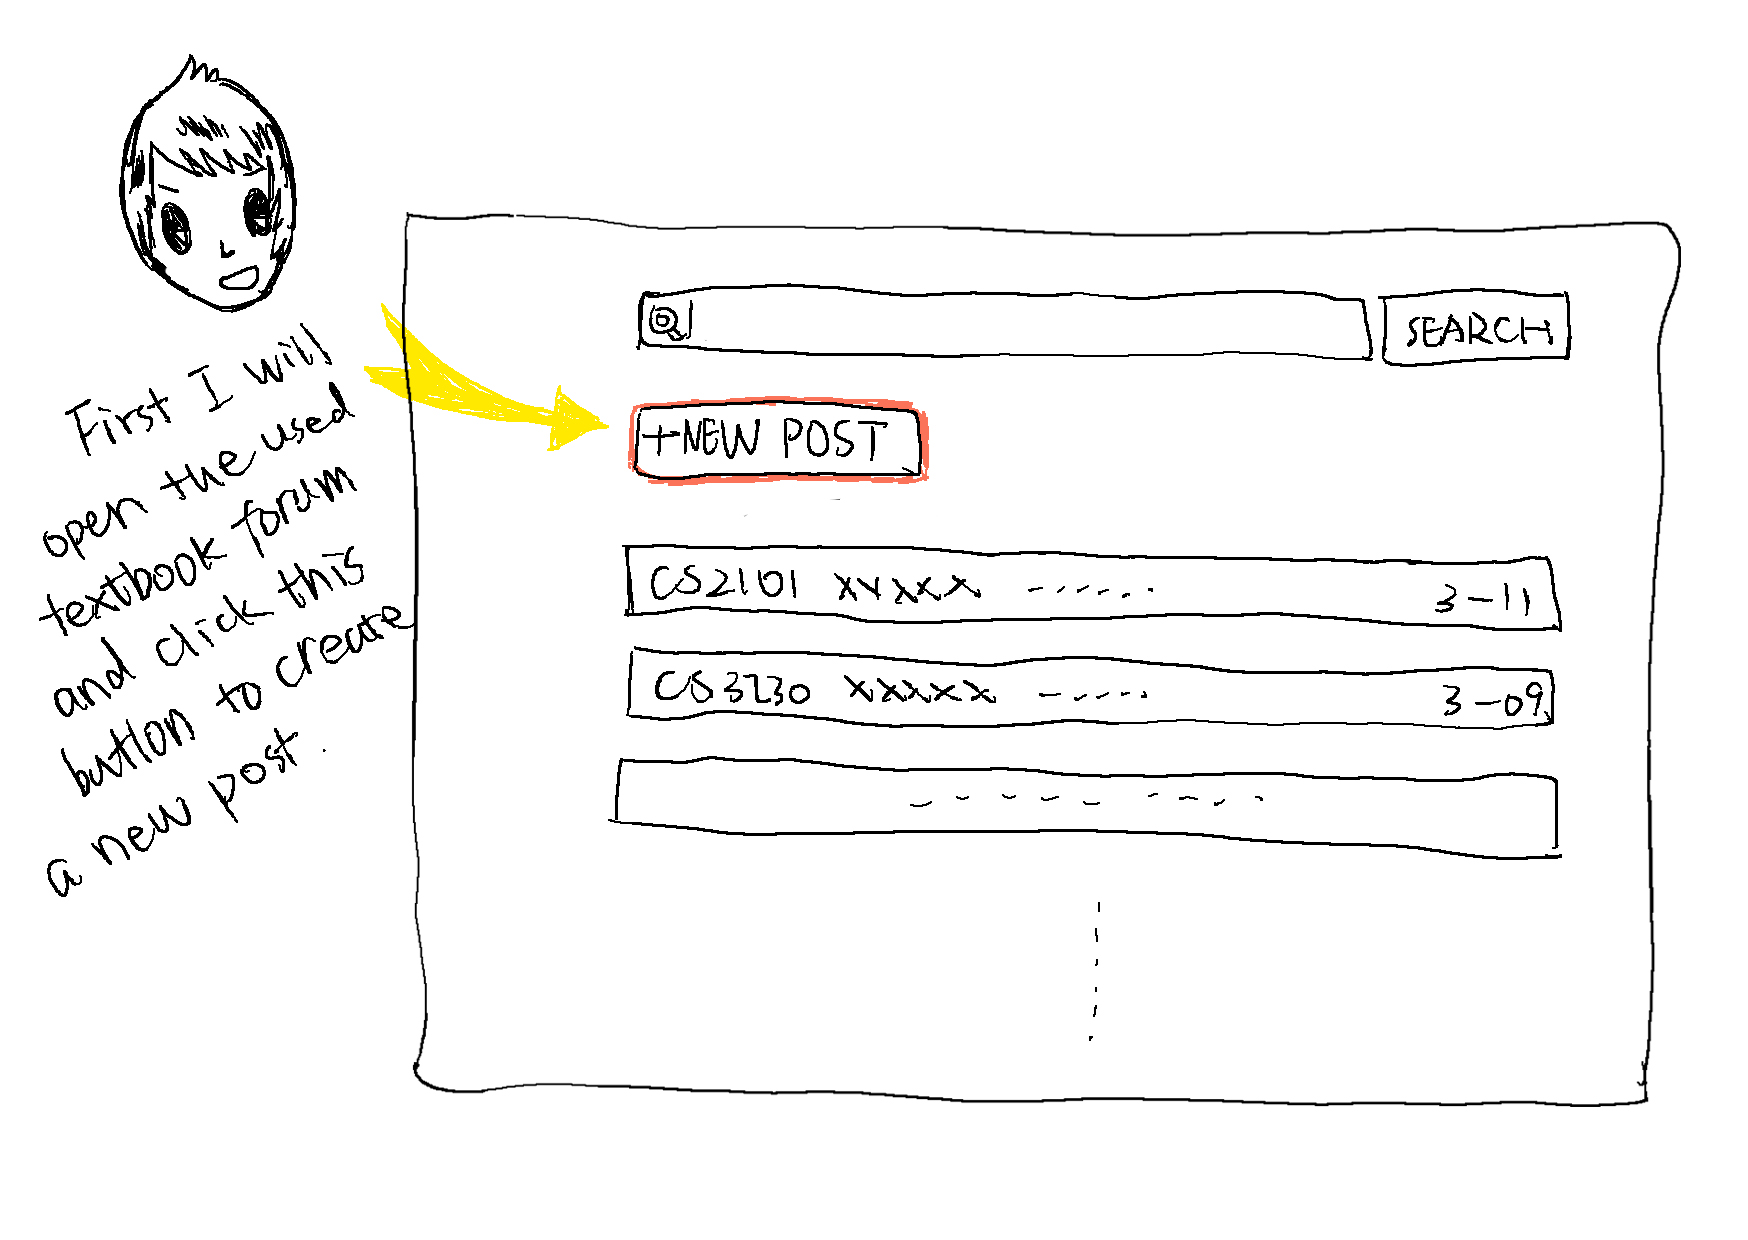 First I will
open the used
textbook forum
and click this
button to create
a new post.
SEARCH
+NEW POST
CS2101 XXXXX ------ 3-11
CS3230 XXXXX ------ 3-09